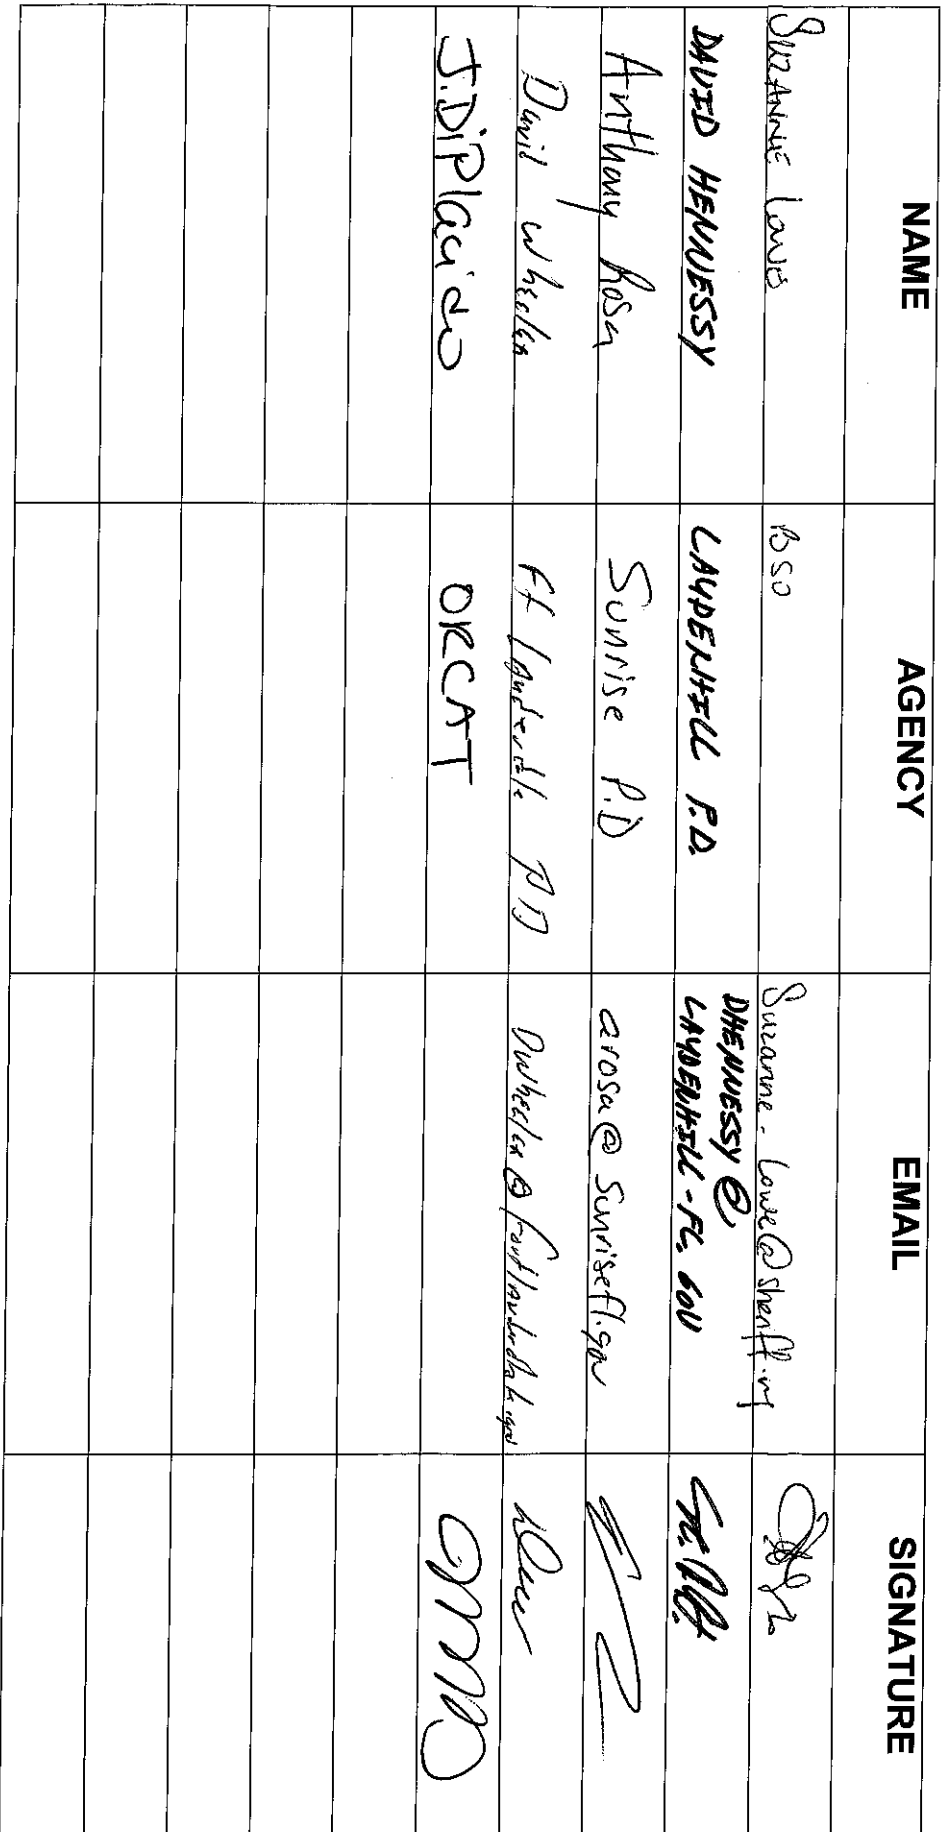 NAME AGENCY EMAIL SIGNATURE
Suzanne Lowe BSO Suzanne-Lowe@sheriff.org
DAVID HENNESSY LAUDERHILL P.D. DHENNESSY@
LAUDERHILL-FL.GOV
Anthony Rosa Sunrise P.D arosa@sunrisefl.gov
David Wheeler Ft Lauderdale PD Dwheeler@fortlauderdale.gov
J.DiPlacido ORCAT